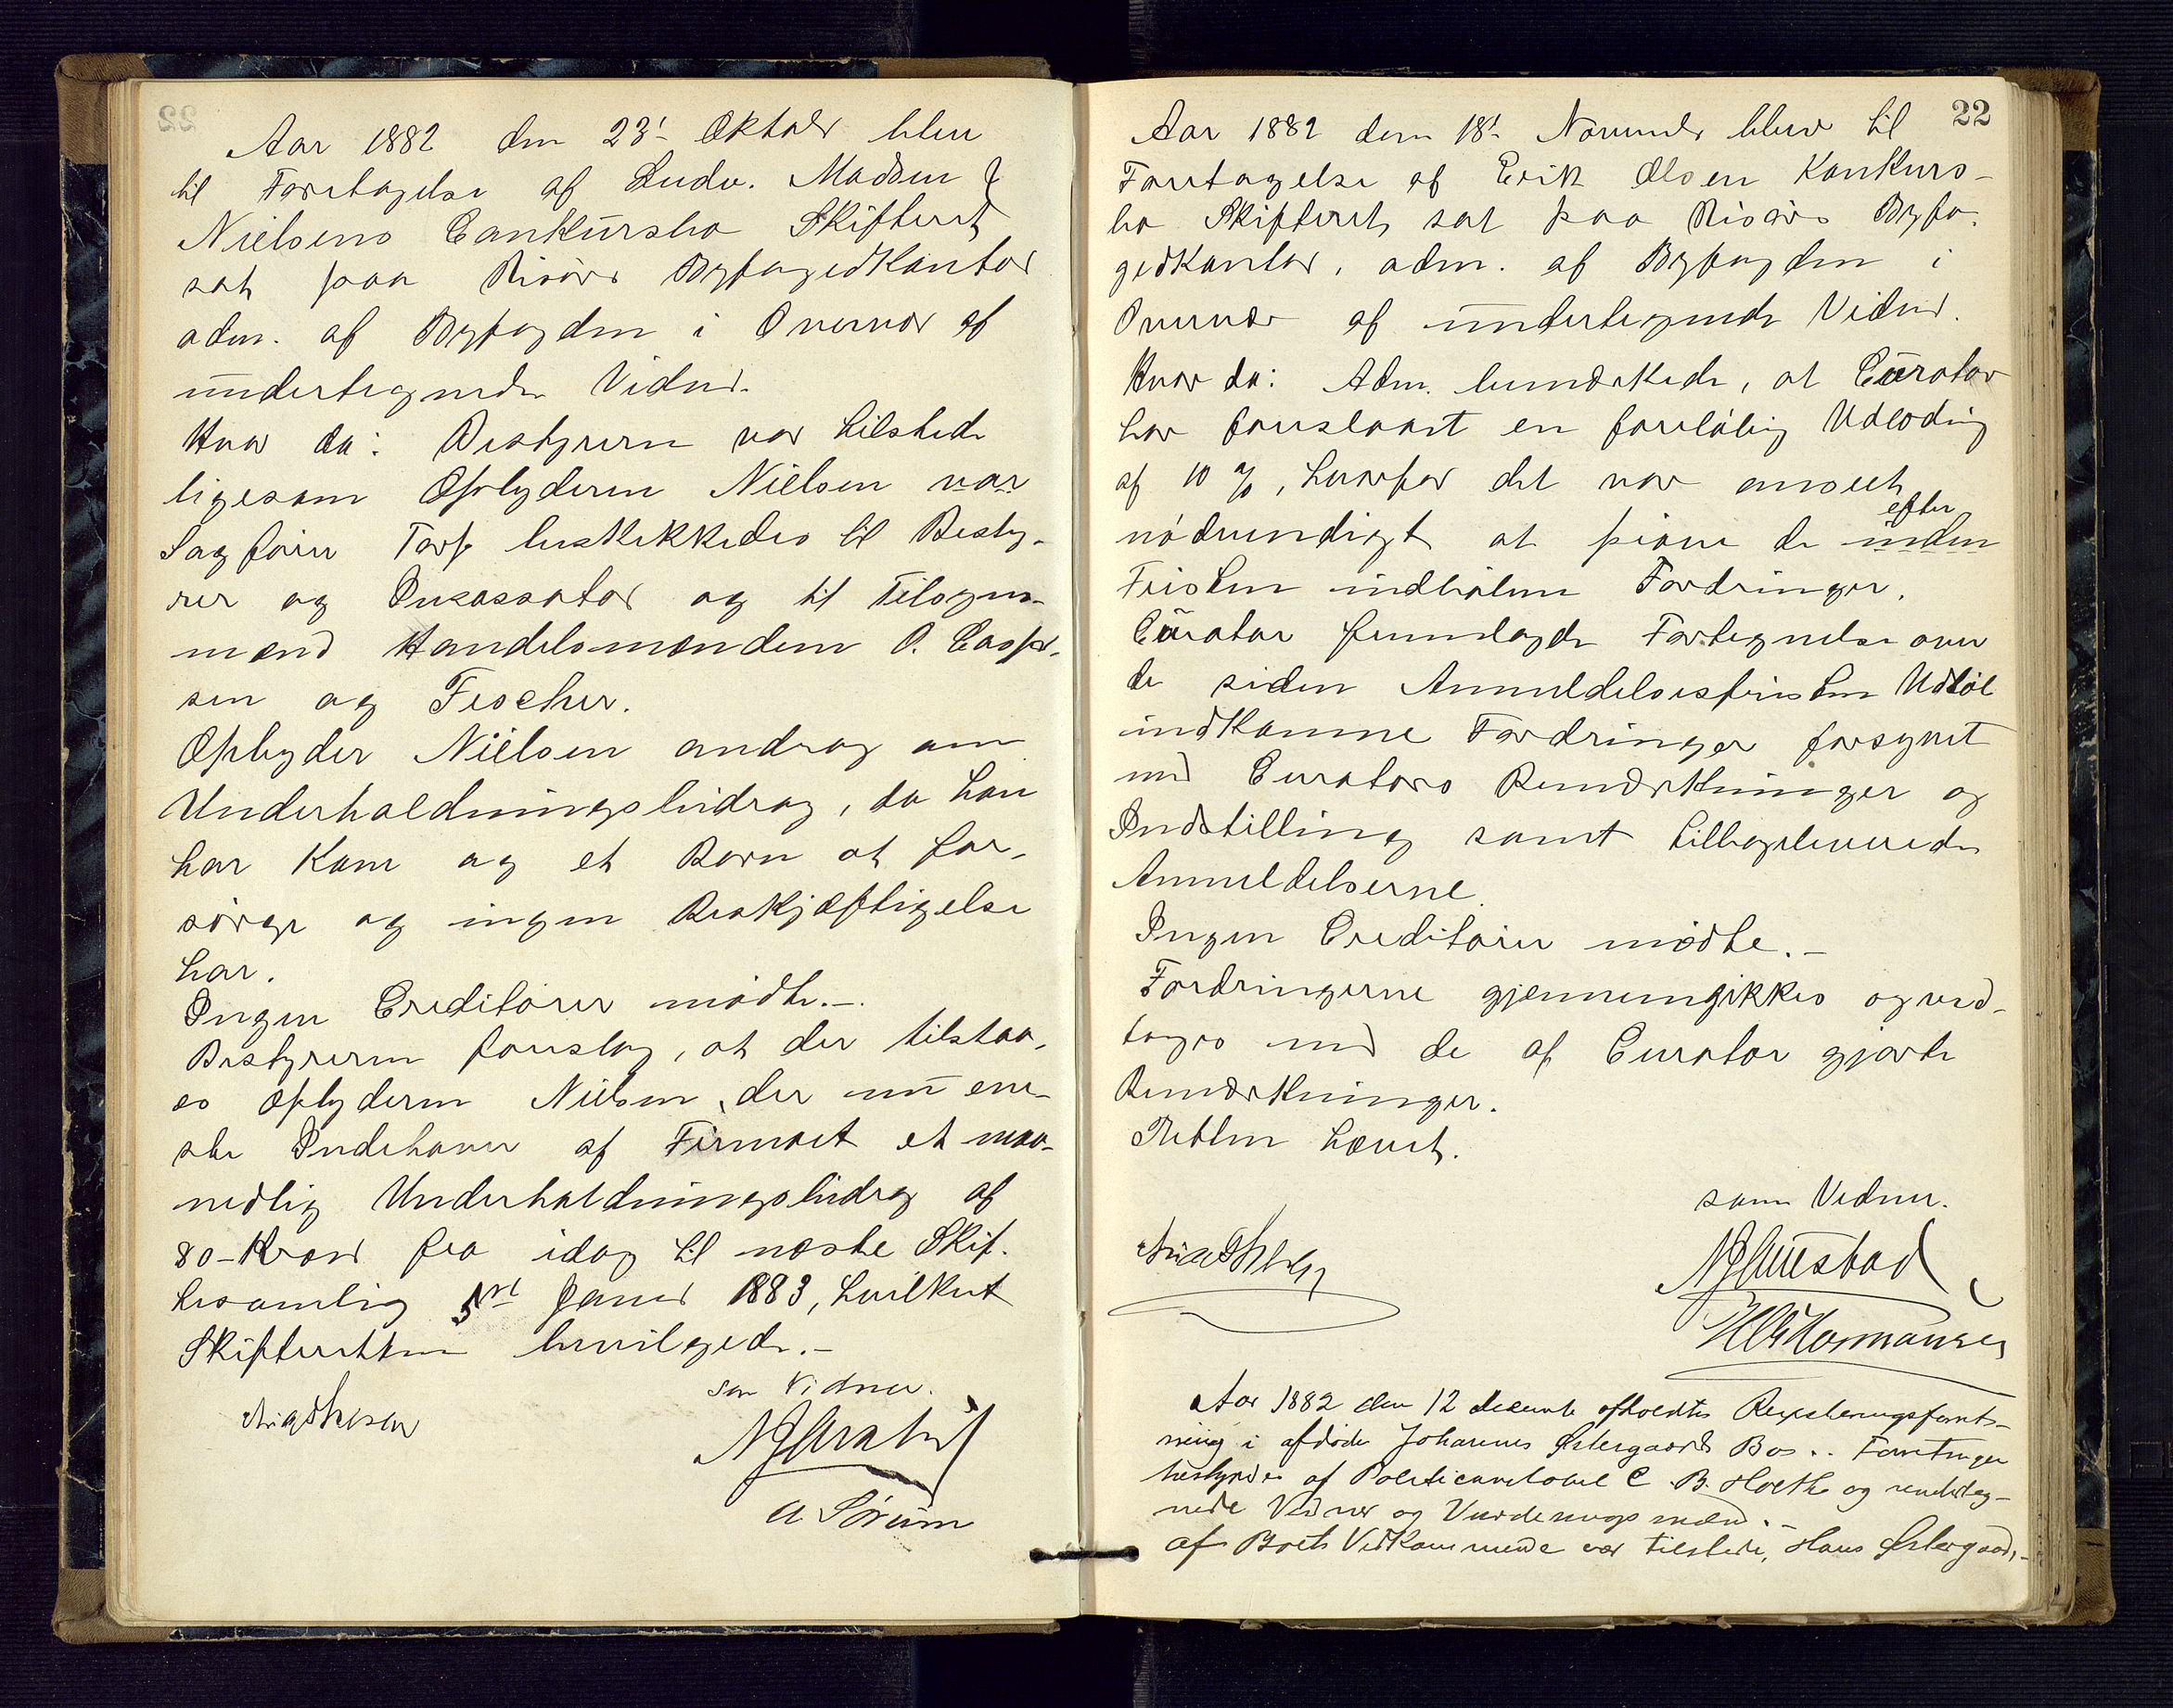 Aar 1882 den 23' Oktober blev
til Foretagelse af Ludv. Madsen &
Nielsens Concursbo Skifteret
sat paa Risørs Byfogedkontor
adm. af Byfogden i Overvær af
undertegnede Vidner.
Hvor da: Bestyreren var tilstede
ligesom Opbyderen Nielsen var
Sagfører Torp beskikkedes til Besty-
rer og Incassator og til Tilsyns-
mænd Handelsmændene O. Casper-
sen og Fischer.
Opbyder Nielsen androg om
Underholdningsbidrag, da han
har Kone og et Barn at for-
sørge og ingen Beskjæftigelse
har.
Ingen Creditorer mødte.-
Bestyreren foreslog, at der tilstaa-
es Opbyderen Nielsen, der nu ene-
ste Indehaver af Firmaet et maa-
nedlig Underholdningsbidrag af
80 - Kroner fra idag til næste Skif-
tesamling Januar 1883, hvilket
Skifteretten bevilgede.-
som Vidner.
A Sørum
22
Aar 1882 den 18' November blev til
Foretagelse af Erik Olsen Konkurs-
bo Skifteret sat paa Risørs Byfo-
gedkontor, adm. af Byfogden i
Overvær af undertegnede Vidner.
Hvor da: Adm. bemærkede, at Curator
har foreslaaet en foreløbig Udlodning
af 10 %, hvorfor det var anseet
efter
nødvendigt at prøve de inden
Fristen indkomne Fordringer.
Curator fremlagde Fortegnelse over
de siden Anmeldelsesfristen Udløb
indkomne Fordringer forsynet
med Curators Bemærkninger og
Indstilling samt tilbageleverede
Anmeldelserne.
Ingen Creditorer mødte.-
Fordringerne gjennemgikkes og ved-
toges med de af Curator gjorte
Bemærkninger.
Retten hævet.
som Vidner.
Aar 1882 den 12 december afholdtes Registreringsforret-
ning i afdøde Johannes Østergaards Bo.. Forretningen
bestyredes af Politiconstabel C. B. Holth og underteg-
nede Vidner og Vurderingsmænd.-
af Boets Vedkommende var tilstede, Hans Østergaard,-